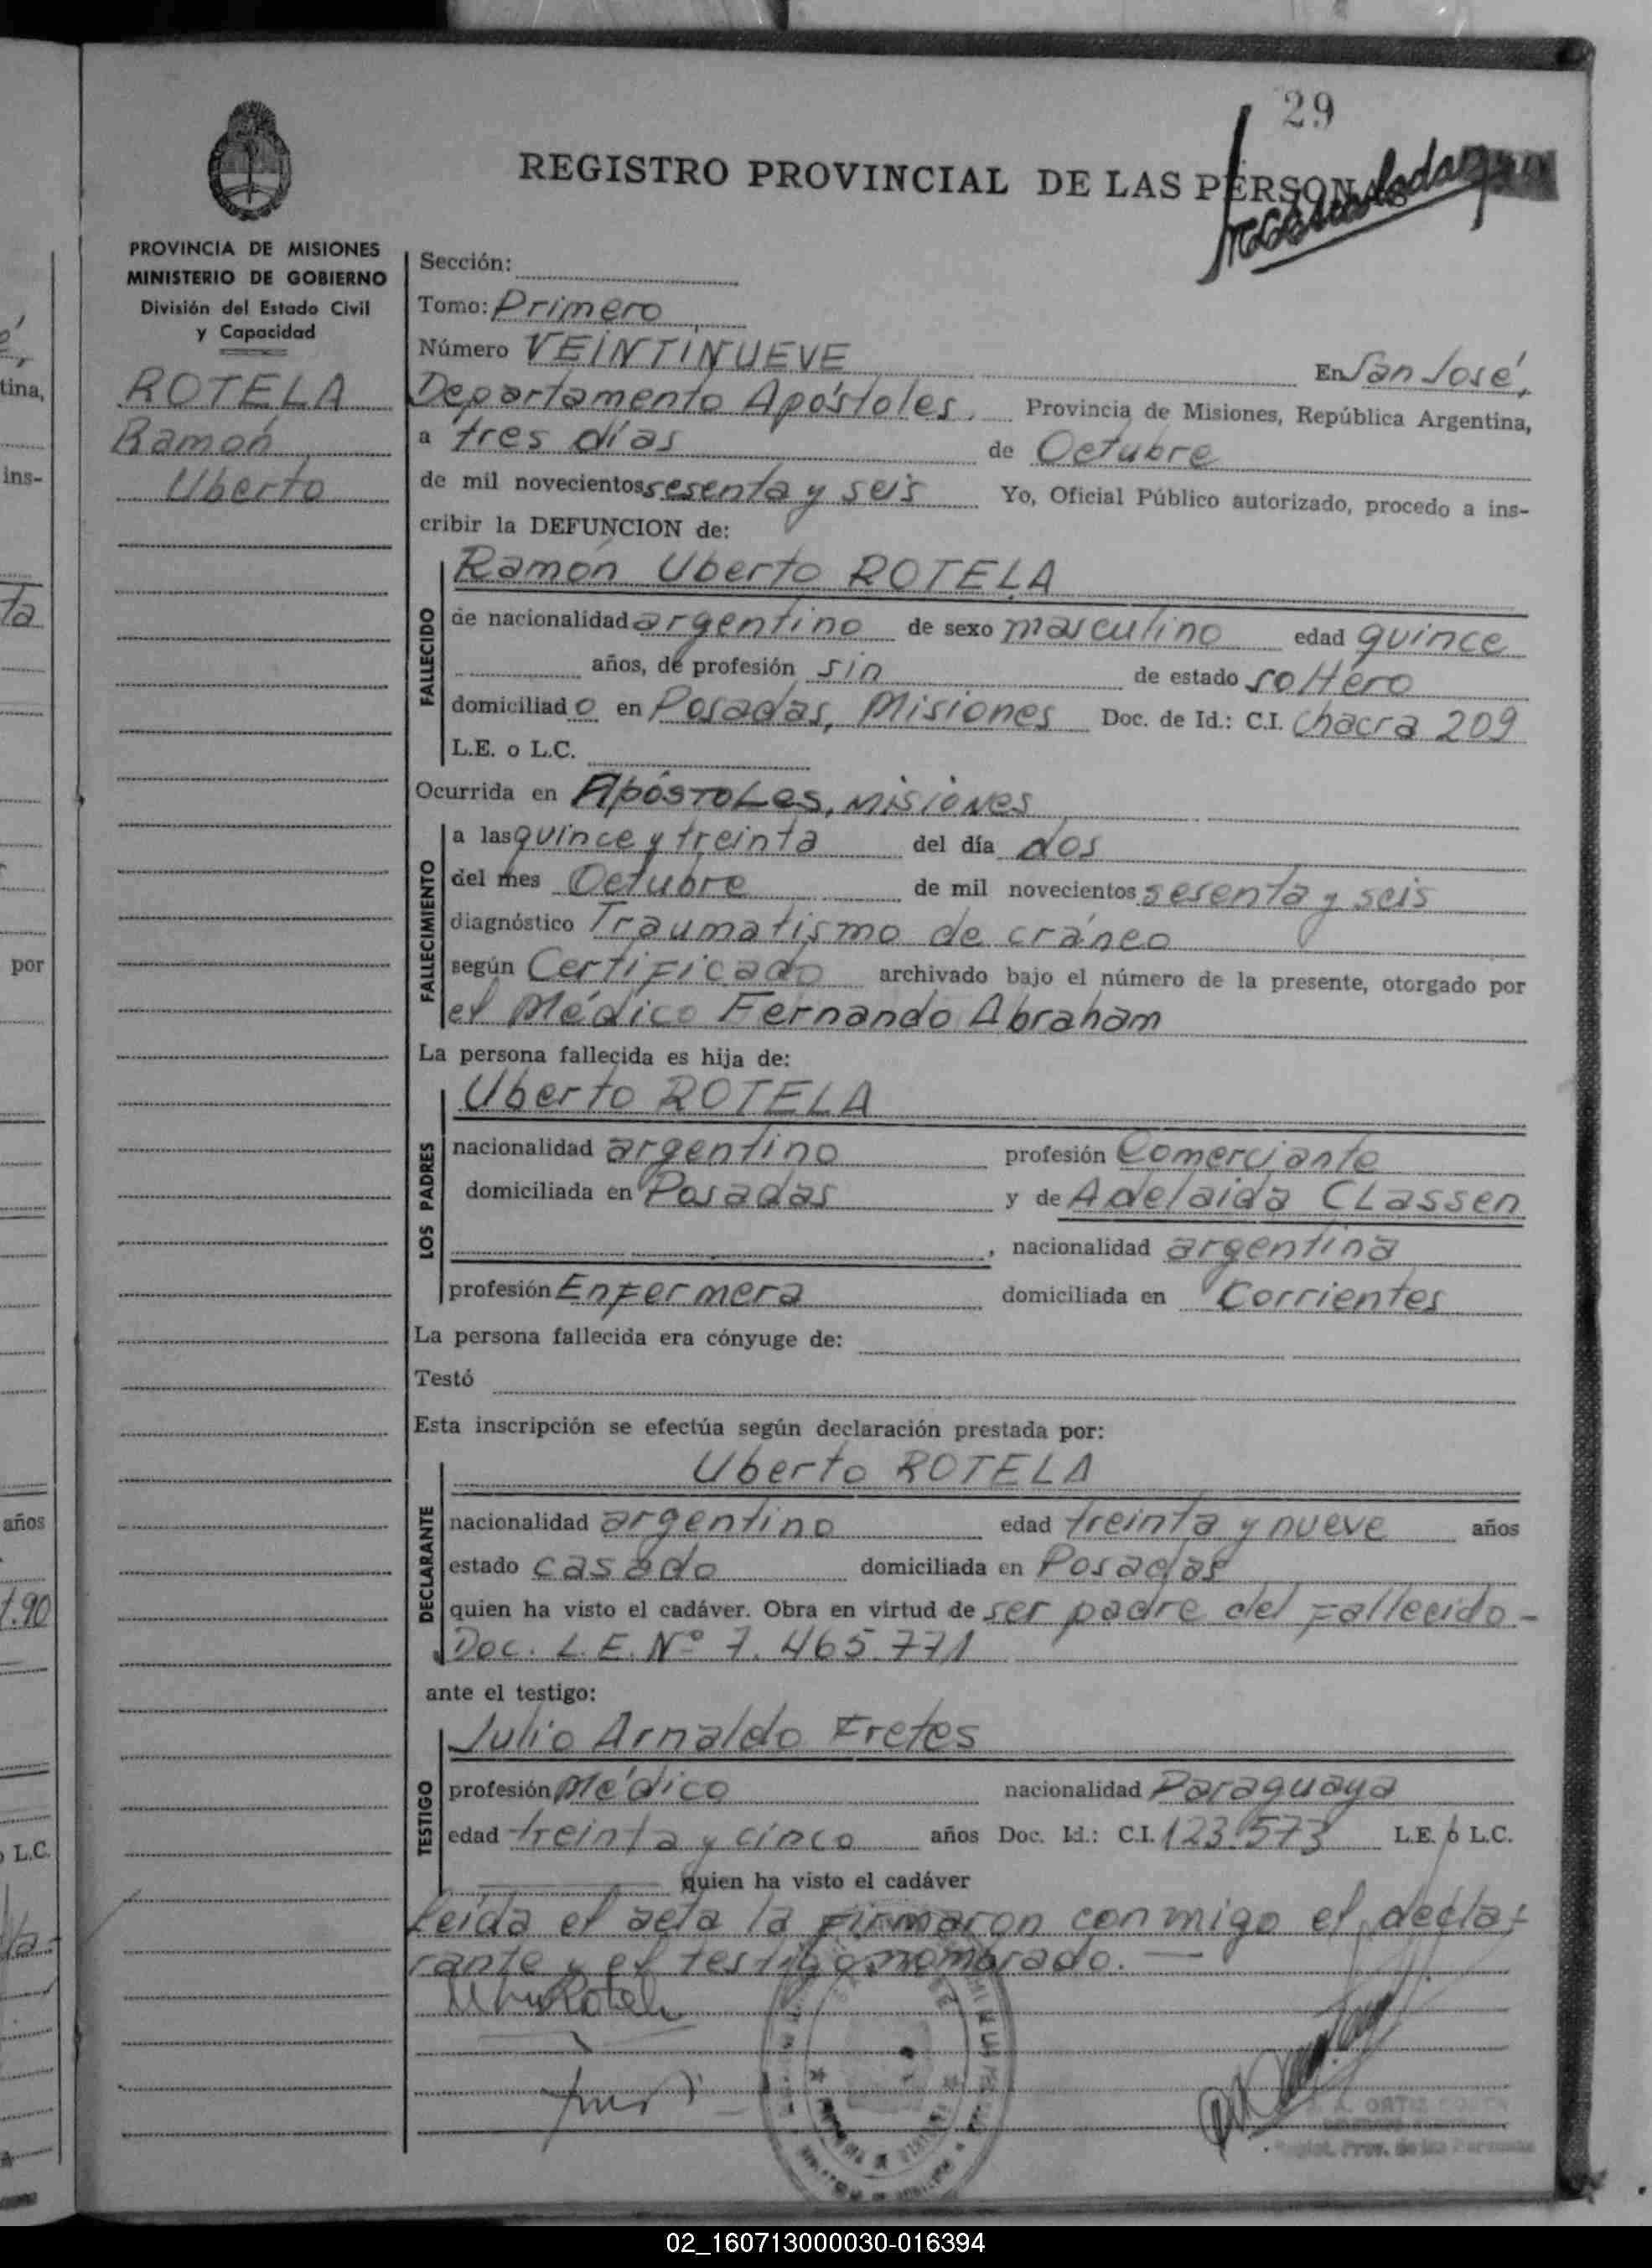 29
REGISTRO PROVINCIAL DE LAS PERSONAS
PROVINCIA DE MISIONES
MINISTERIO DE GOBIERNO
División del Estado Civil
y Capacidad
ROTELA
Ramón
Uberto
Sección:
Tomo: Primero
Número VEINTINUEVE En San José,
Departamento Apóstoles. Provincia de Misiones, República Argentina,
a tres días de Octubre
de mil novecientos sesenta y seis Yo, Oficial Público autorizado, procedo a ins-
cribir la DEFUNCION de:
FALLECIDO
Ramón Uberto ROTELA
de nacionalidad argentino de sexo masculino edad quince
años, de profesión sin de estado soltero
domiciliado en Posadas, Misiones Doc. de Id.: C.I. Chacra 209
L.E. o L.C.
Ocurrida en Apóstoles, Misiones
FALLECIMIENTO
a las quince y treinta del día dos
del mes Octubre de mil novecientos sesenta y seis
diagnóstico Traumatismo de cráneo
según Certificado archivado bajo el número de la presente, otorgado por
el Médico Fernando Abraham
La persona fallecida es hija de:
LOS PADRES
Uberto ROTELA
nacionalidad argentino profesión Comerciante
domiciliada en Posadas y de Adelaida CLassen
, nacionalidad argentina
profesión Enfermera domiciliada en Corrientes
La persona fallecida era cónyuge de:
Testó
Esta inscripción se efectúa según declaración prestada por:
DECLARANTE
Uberto ROTELA
nacionalidad argentino edad treinta y nueve años
estado casado domiciliada en Posadas
quien ha visto el cadáver. Obra en virtud de ser padre del fallecido-
Doc. L.E. Nº 7.465.771
ante el testigo:
TESTIGO
Julio Arnaldo Fretes
profesión Médico nacionalidad Paraguaya
edad treinta y cinco años Doc. Id.: C.I. 123.573 L.E. ó L.C.
quien ha visto el cadáver
Leída el acta la firmaron conmigo el decla-
rante y el testigo nombrado.
Rotela
A. ORTIZ
Regist. Prov. de las Personas
é,
tina,
ins-
ta
por
años
1.90
o L.C.
02_160713000030-016394